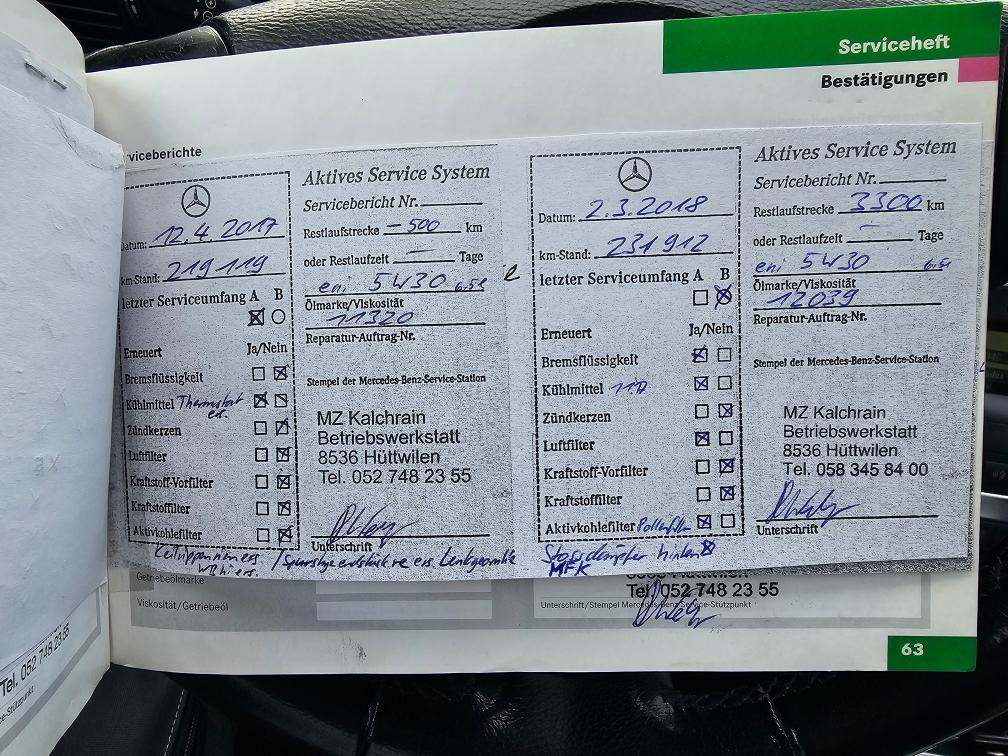 Serviceheft
Bestätigungen
rviceberichte
Datum: 12.4.2017
km-Stand: 219119
letzter Serviceumfang A B
Erneuert Ja/Nein
Bremsflüssigkeit
Kühlmittel Thermostat ers.
Zündkerzen
Luftfilter
Kraftstoff-Vorfilter
Kraftstoffilter
Aktivkohlefilter
Keilrippenriemen ers.
/ Spurstange re ers. Lenkgeometrie
Aktives Service System
Servicebericht Nr.
Restlaufstrecke -500 km
oder Restlaufzeit — Tage
eni 5W30 6,5l
Ölmarke/Viskosität
11320
Reparatur-Auftrag-Nr.
Stempel der Mercedes-Benz-Service-Station
MZ Kalchrain
Betriebswerkstatt
8536 Hüttwilen
Tel. 052 748 23 55
Unterschrift
Datum: 2.3.2018
km-Stand: 231912
letzter Serviceumfang A B
Erneuert Ja/Nein
Bremsflüssigkeit
Kühlmittel
Zündkerzen
Luftfilter
Kraftstoff-Vorfilter
Kraftstoffilter
Aktivkohlefilter Pollenfilter
Stossdämpfer hinten
MFK
Aktives Service System
Servicebericht Nr.
Restlaufstrecke 3300 km
oder Restlaufzeit — Tage
eni 5W30 6,5l
Ölmarke/Viskosität
12039
Reparatur-Auftrag-Nr.
Stempel der Mercedes-Benz-Service-Station
MZ Kalchrain
Betriebswerkstatt
8536 Hüttwilen
Tel. 058 345 84 00
Unterschrift
Getriebeölmarke
Viskosität/Getriebeöl
Tel. 052 748 23 55
Unterschrift/Stempel Mercedes-Benz Service-Stützpunkt
63
Tel. 052 748 23 55
ce-Stützpunkt